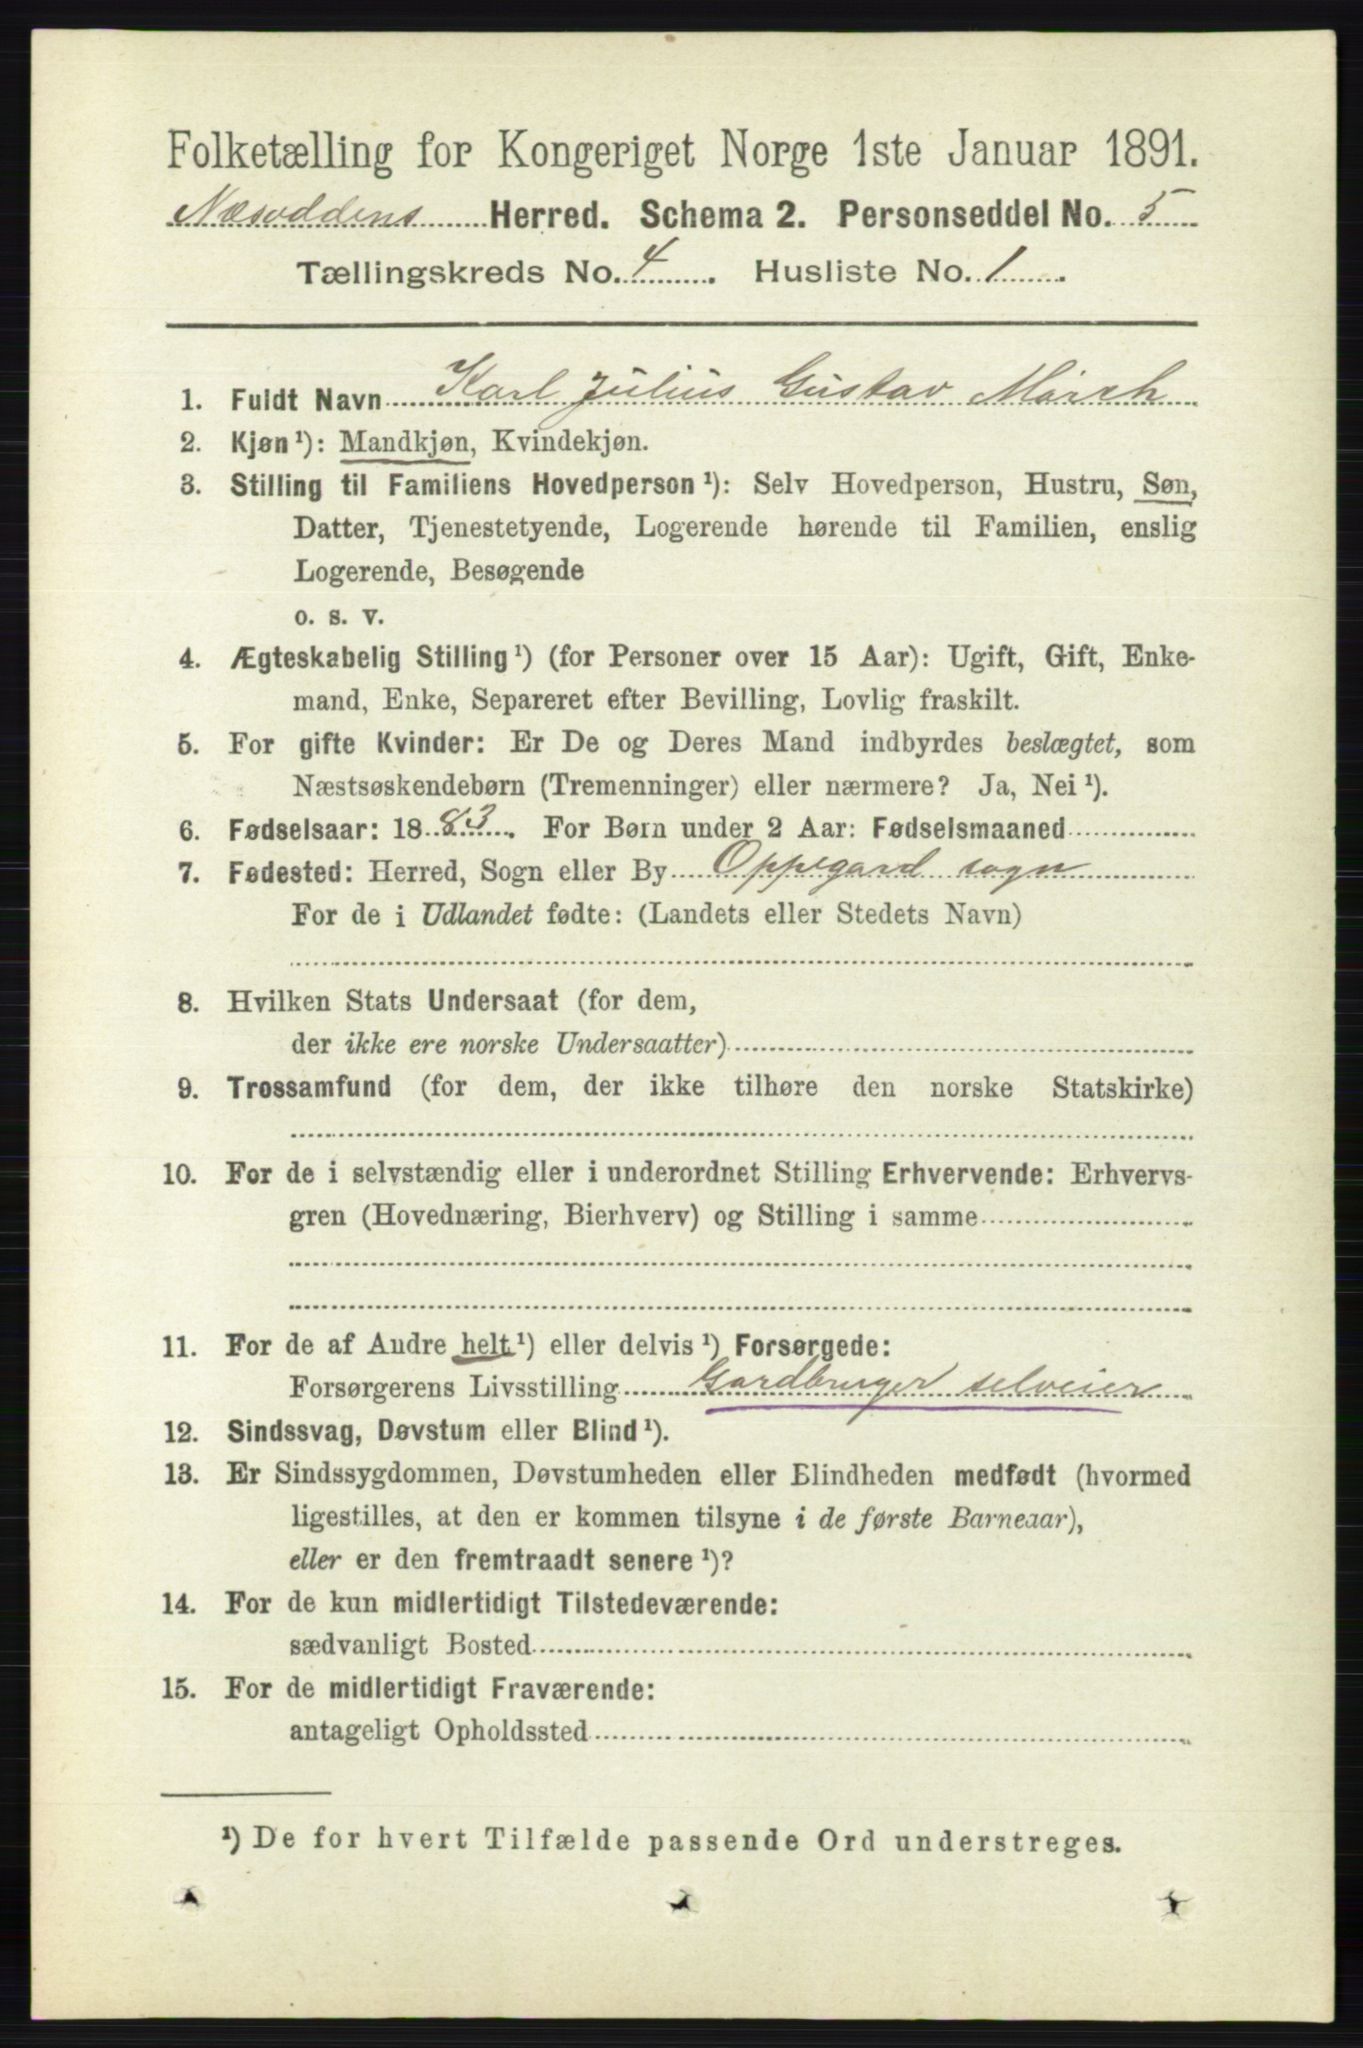 Folketælling for Kongeriget Norge 1ste Januar 1891.
Næsoddens Herred. Schema 2. Personseddel No. 5
Tællingskreds No. 4. Husliste No. 1.
1. Fuldt Navn Karl Julius Gustav Mørch
2. Kjøn ¹): Mandkjøn, Kvindekjøn.
3. Stilling til Familiens Hovedperson ¹): Selv Hovedperson, Hustru, Søn,
Datter, Tjenestetyende, Logerende hørende til Familien, enslig
Logerende, Besøgende
o. s. v.
4. Ægteskabelig Stilling ¹) (for Personer over 15 Aar): Ugift, Gift, Enke-
mand, Enke, Separeret efter Bevilling, Lovlig fraskilt.
5. For gifte Kvinder: Er De og Deres Mand indbyrdes beslægtet, som
Næstsøskendebørn (Tremenninger) eller nærmere? Ja, Nei ¹).
6. Fødselsaar: 1883. For Børn under 2 Aar: Fødselsmaaned
7. Fødested: Herred, Sogn eller By Oppegard sogn
For de i Udlandet fødte: (Landets eller Stedets Navn)
8. Hvilken Stats Undersaat (for dem,
der ikke ere norske Undersaatter)
9. Trossamfund (for dem, der ikke tilhøre den norske Statskirke)
10. For de i selvstændig eller i underordnet Stilling Erhvervende: Erhvervs-
gren (Hovednæring, Bierhverv) og Stilling i samme
11. For de af Andre helt ¹) eller delvis ¹) Forsørgede:
Forsørgerens Livsstilling Gardbruger selveier
12. Sindssvag, Døvstum eller Blind ¹).
13. Er Sindssygdommen, Døvstumheden eller Blindheden medfødt (hvormed
ligestilles, at den er kommen tilsyne i de første Barneaar),
eller er den fremtraadt senere ¹)?
14. For de kun midlertidigt Tilstedeværende:
sædvanligt Bosted
15. For de midlertidigt Fraværende:
antageligt Opholdssted
¹) De for hvert Tilfælde passende Ord understreges.